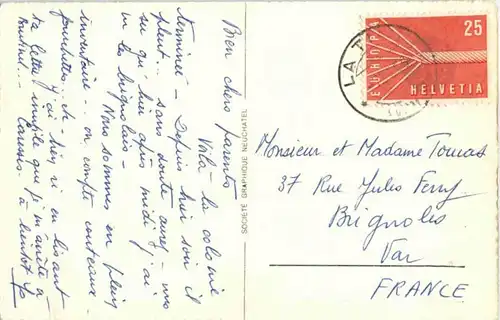 Bien chers parents
Voilà la colonie
terminée - Depuis hier soir il
pleut... sans doute aurez-vous
su qu'hier après midi j'ai
vu le brignolais -
Nous sommes en plein
inventaire - on compte couteaux -
fourchettes... etc -
J'ai bien ri en lisant
ta lettre, inutile que je m'arrête à
à bientôt
SOCIÉTÉ GRAPHIQUE NEUCHATEL
LA
EUROPA
25
HELVETIA
Monsieur et Madame Tomas
37 Rue Jules Ferry
Brignoles
Var
FRANCE